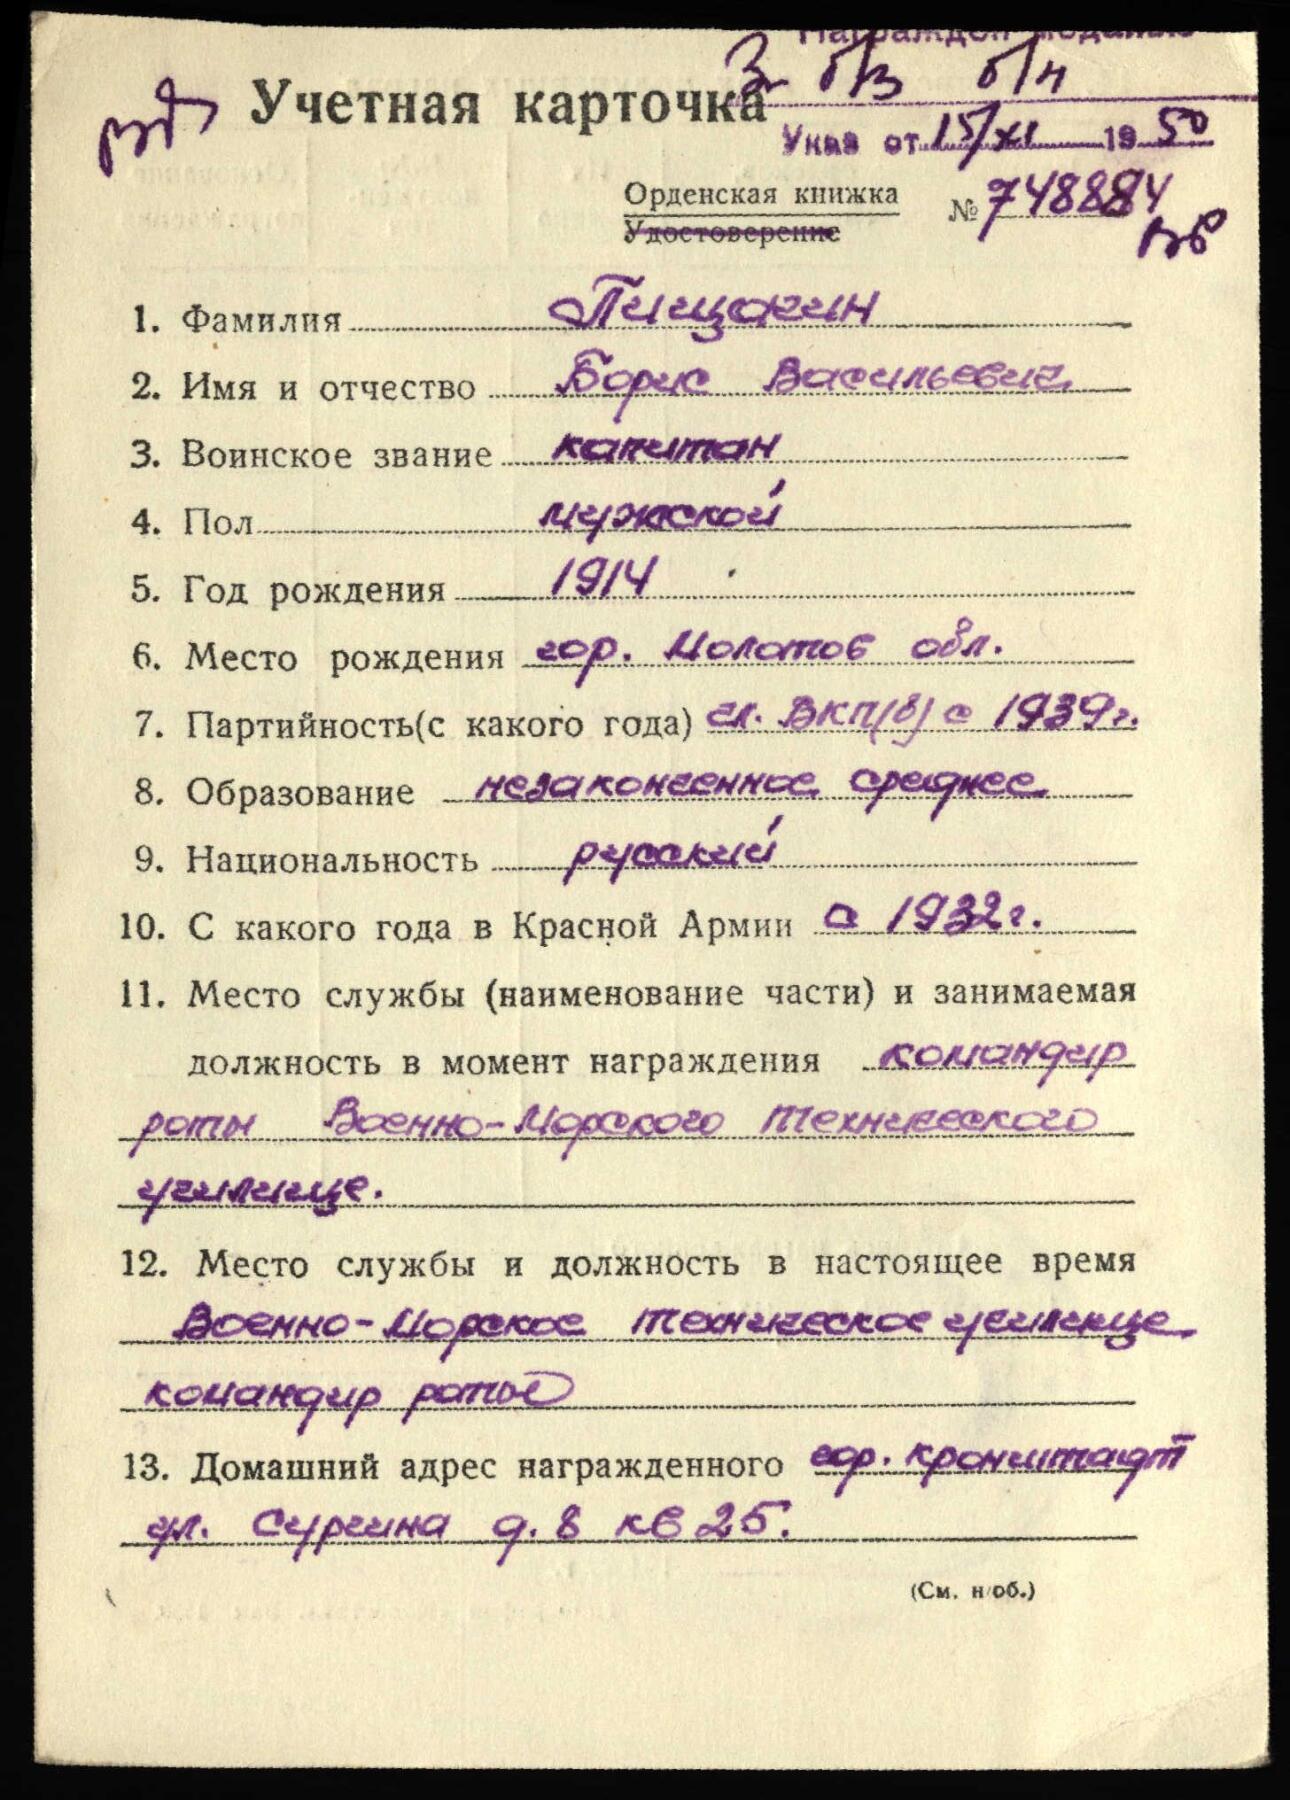 Награжден медалью
За б/з б/н
Учетная карточка
Указ от 15/XI 1950
Орденская книжка № 748884
Удостоверение
1. Фамилия Пищокин
2. Имя и отчество Борис Васильевич
3. Воинское звание капитан
4. Пол мужской
5. Год рождения 1914
6. Место рождения гор. Молотов обл.
7. Партийность(с какого года) чл. ВКП(б) с 1939г.
8. Образование незаконченное среднее
9. Национальность русский
10. С какого года в Красной Армии с 1932г.
11. Место службы (наименование части) и занимаемая
должность в момент награждения командир
роты Военно-Морского технического
училище.
12. Место службы и должность в настоящее время
Военно-Морское техническое училище
командир роты
13. Домашний адрес награжденного гор. Кронштадт
ул. Сургина д. 8 кв 25.
(См. н/об.)